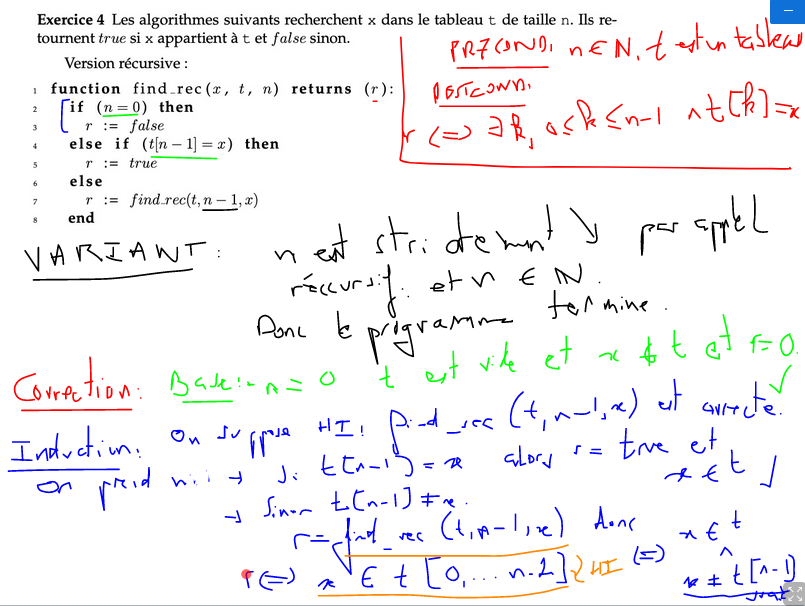 Exercice 4 Les algorithmes suivants recherchent x dans le tableau t de taille n. Ils re-
tournent true si x appartient à t et false sinon.
Version récursive :
1 function find_rec(x, t, n) returns (r):
2 if (n = 0) then
3 r := false
4 else if (t[n − 1] = x) then
5 r := true
6 else
7 r := find_rec(t, n − 1, x)
8 end
PRÉCOND. n ∈ N, t est un tableau
POSTCOND.
r <=> ∃k, 0 ≤ k ≤ n-1 ∧ t[k] = x
VARIANT : n est strictement ↘ par appel
réccursif. et n ∈ N.
Donc le programme termine.
Correction : Base :- n = 0 t est vide et x ∉ t et r = 0. ✓
Induction. On suppose HI : find_rec (t, n-1, x) est correcte.
On prend → Si t[n-1] = x alors r = true et
x ∈ t
→ Sinon t[n-1] ≠ x.
r = find_rec (t, n-1, x) donc x ∈ t
r <=> x ∈ t [0, ... n-2] HI <=> ∧
x ≠ t[n-1]